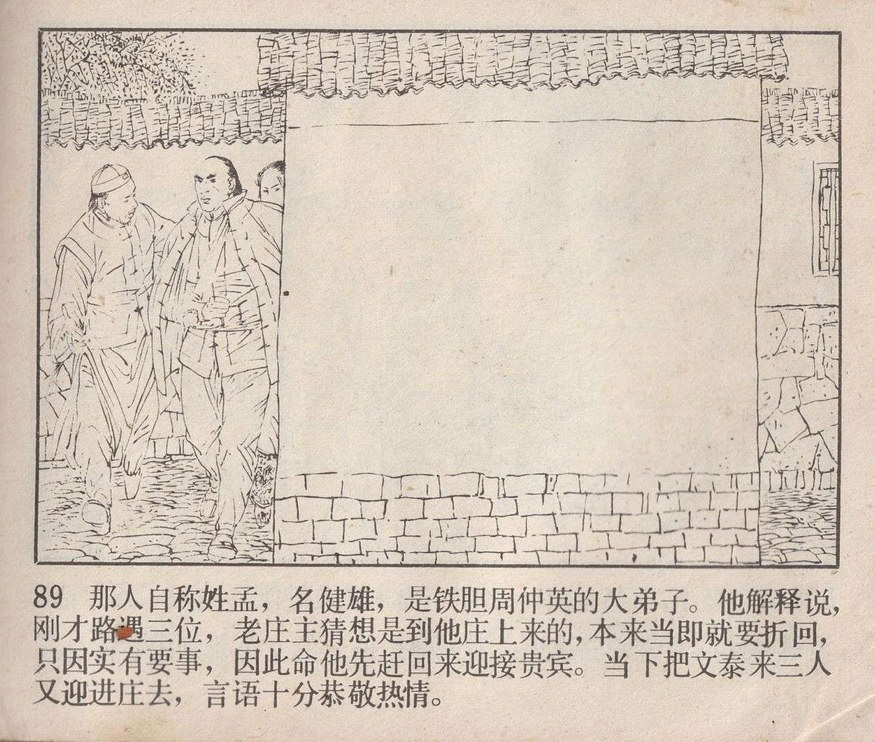 89 那人自称姓孟，名健雄，是铁胆周仲英的大弟子。他解释说，
刚才路遇三位，老庄主猜想是到他庄上来的，本来当即就要折回，
只因实有要事，因此命他先赶回来迎接贵宾。当下把文泰来三人
又迎进庄去，言语十分恭敬热情。